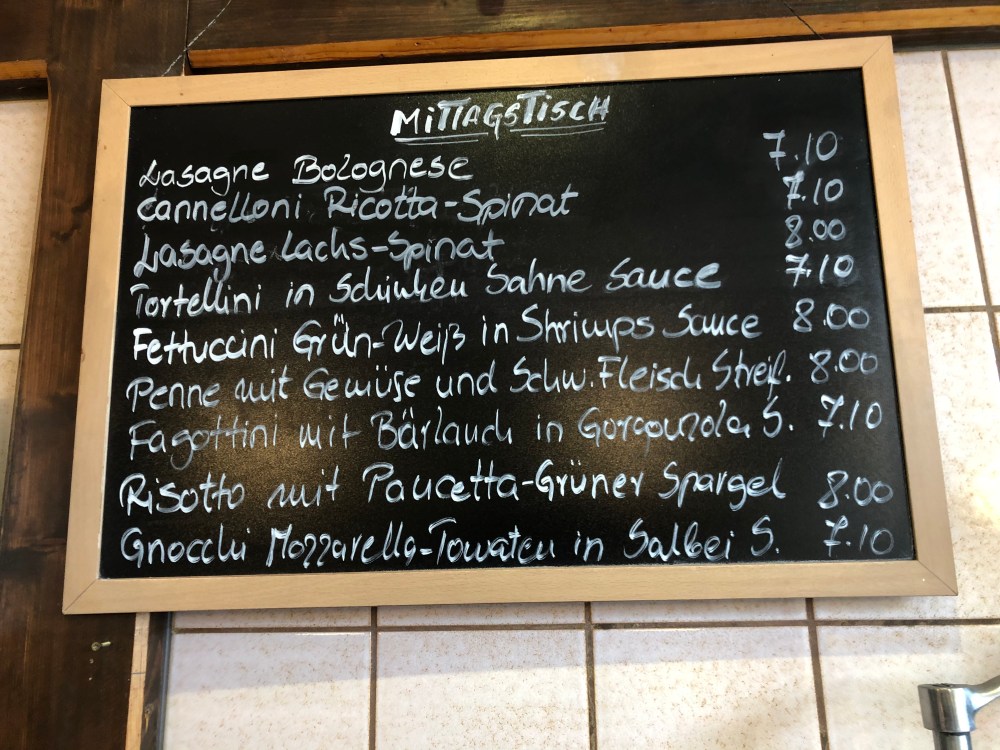 MITTAGSTISCH
Lasagne Bolognese 7.10
Cannelloni Ricotta-Spinat 7.10
Lasagne Lachs-Spinat 8.00
Tortellini in Schinken Sahne Sauce 7.10
Fettuccini Grün-Weiß in Shrimps Sauce 8.00
Penne mit Gemüse und Schw. Fleisch Streif. 8.00
Fagottini mit Bärlauch in Gorgonzola S. 7.10
Risotto mit Pancetta-Grüner Spargel 8.00
Gnocchi Mozzarella-Tomaten in Salbei S. 7.10